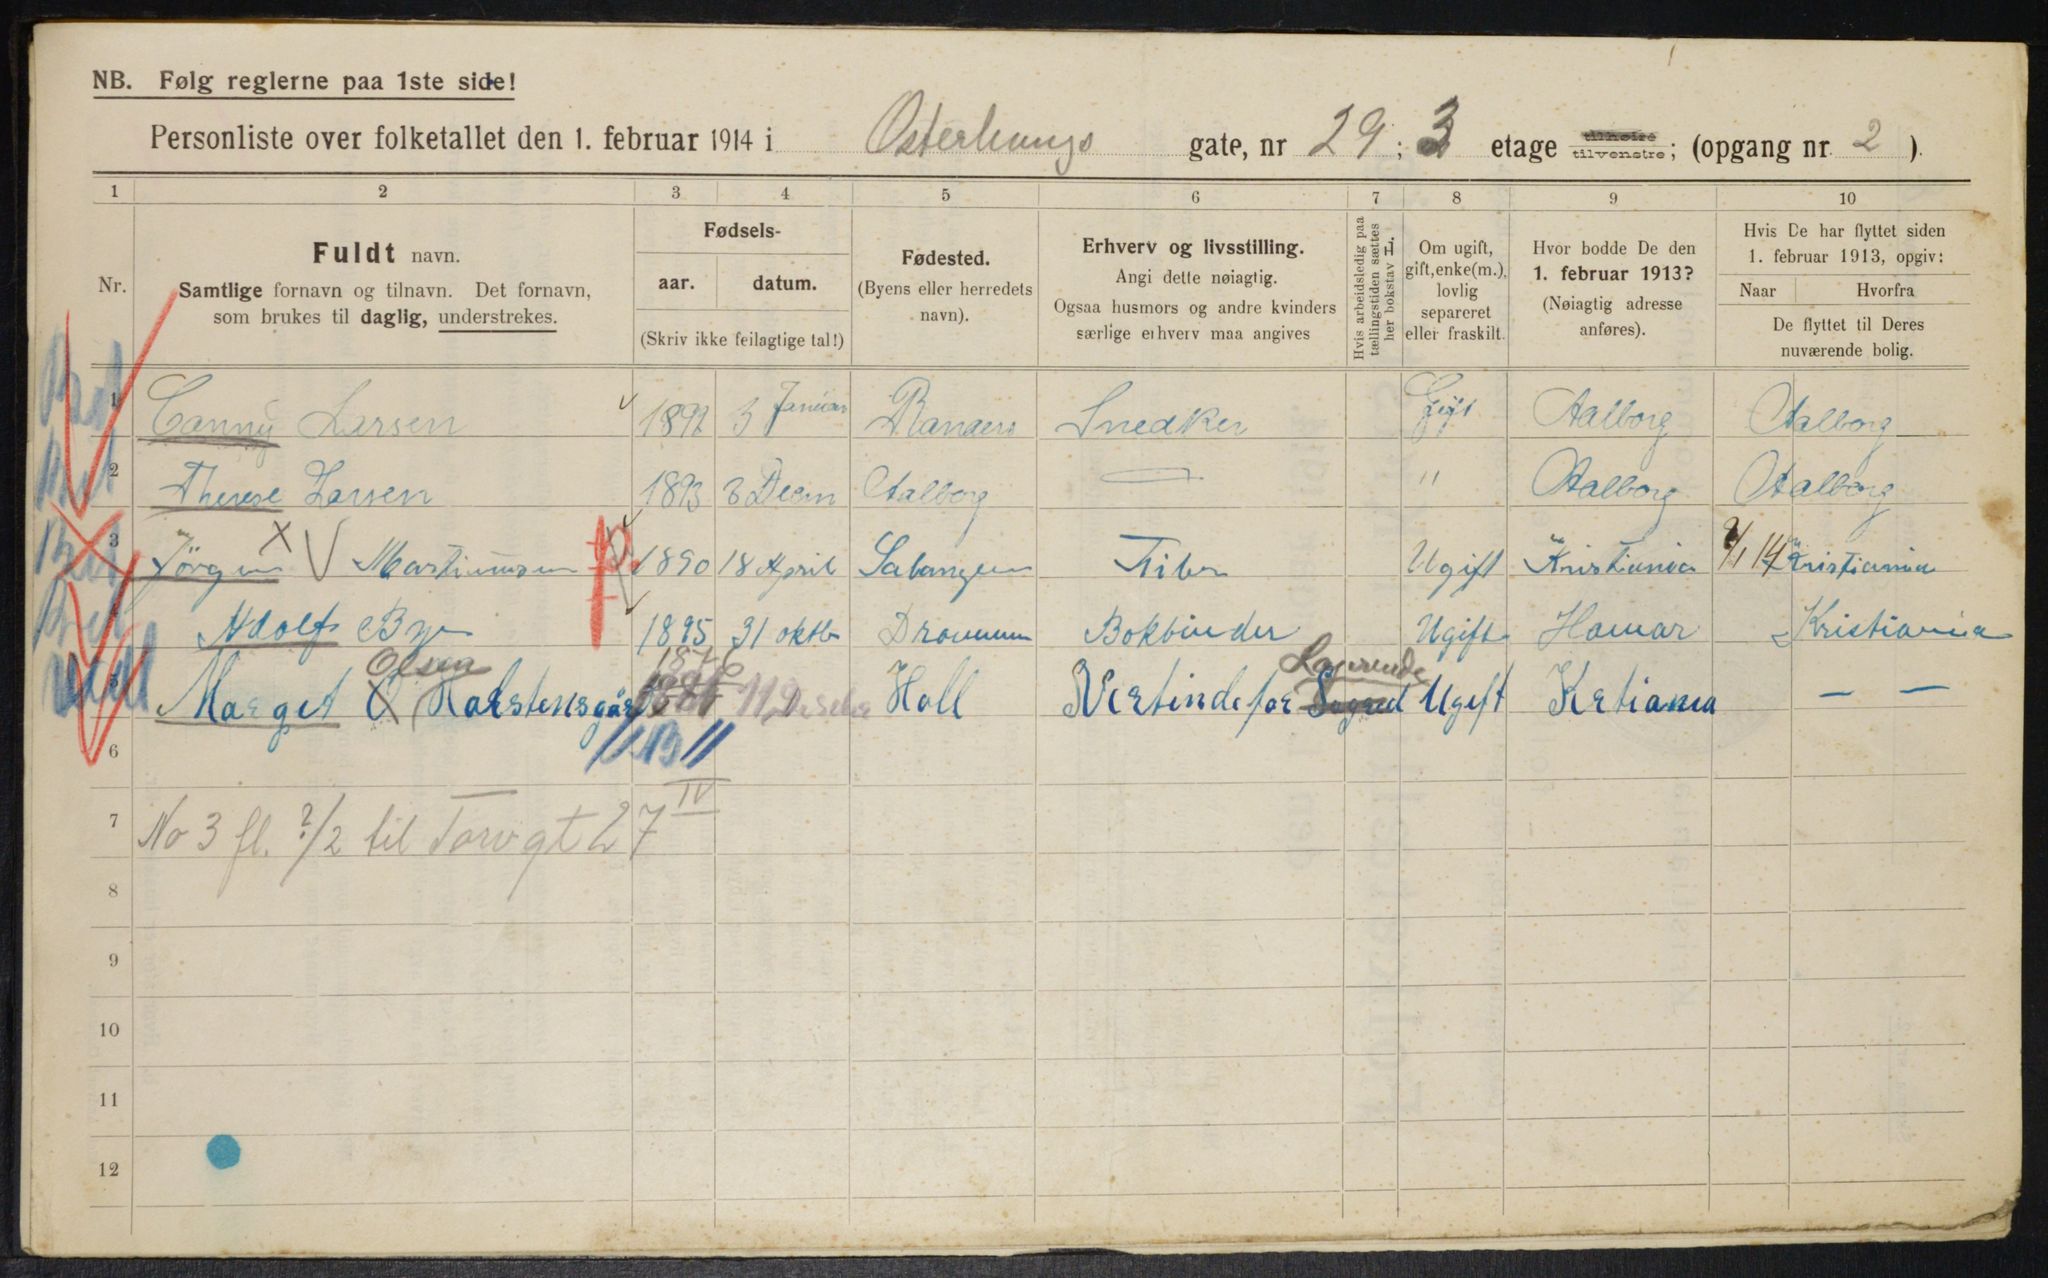 NB. Følg reglerne paa 1ste side!
Personliste over folketallet den 1. februar 1914 i Osterhaugs gate, nr 29; 3 etage tilhøire tilvenstre; (opgang nr 2).
1 2 3 4 5 6 7 8 9 10
Nr.
Fuldt navn.
Samtlige fornavn og tilnavn. Det fornavn,
som brukes til daglig, understrekes.
Fødsels-
aar. datum.
(Skriv ikke feilagtige tal!)
Fødested.
(Byens eller herredets
navn).
Erhverv og livsstilling.
Angi dette nøiagtig.
Ogsaa husmors og andre kvinders
særlige erhverv maa angives
Hvis arbeidsledig paa
tællingstiden sættes
her bokstav L.
Om ugift,
gift, enke(m.),
lovlig
separeret
eller fraskilt.
Hvor bodde De den
1. februar 1913?
(Nøiagtig adresse
anføres).
Hvis De har flyttet siden
1. februar 1913, opgiv:
Naar Hvorfra
De flyttet til Deres
nuværende bolig.
1 Canny Larsen 1892 3 Januar Randers Snedker Gift Aalborg Aalborg
2 Therese Larsen 1893 3 Decm Aalborg — " Aalborg Aalborg
3 Jörgen Martinusen 1890 18 April Salangen Ugift Kristiania 2/1 14 Kristiania
4 Adolf Bye 1895 31 oktb Drammen Bokbinder Ugift Hamar Kristiania
Olsen 1876 Laurende
5 Marget O Karstensgår 11 Holl Vertinde for Ugift Kristiania — —
6
7 No 3 fl. ?/2 til Torvgt 27 IV
8
9
10
11
12